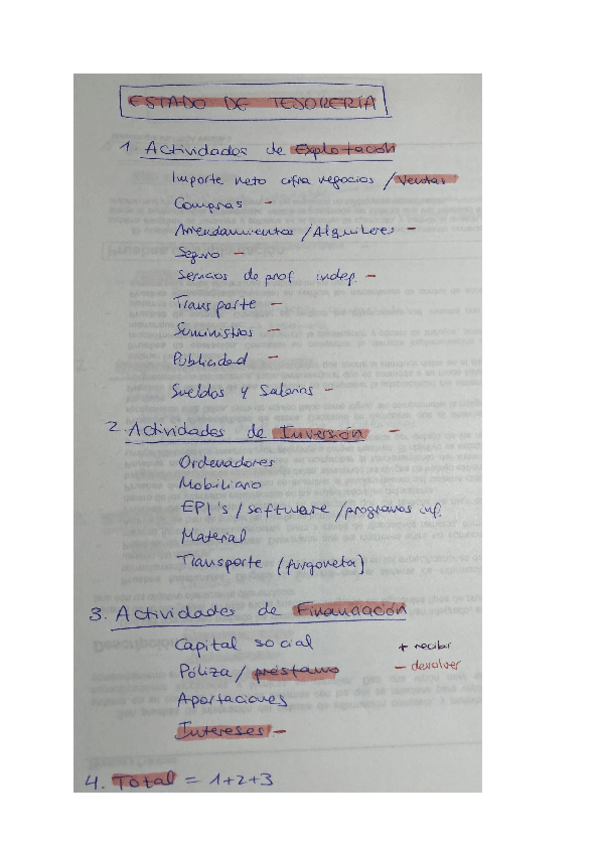 ESTADO DE TESORERÍA
1. Actividades de Explotación
Importe neto cifra negocios / Ventas
Compras -
Arrendamientos / Alquileres -
Seguro -
Servicios de prof. indep. -
Transporte -
Suministros -
Publicidad -
Sueldos y Salarios -
2. Actividades de Inversión -
Ordenadores
Mobiliario
EPI's / software / programas inf.
Material
Transporte (furgoneta)
3. Actividades de Financiación
Capital social + recibir
Póliza / préstamo - devolver
Aportaciones
Intereses -
4. Total = 1+2+3